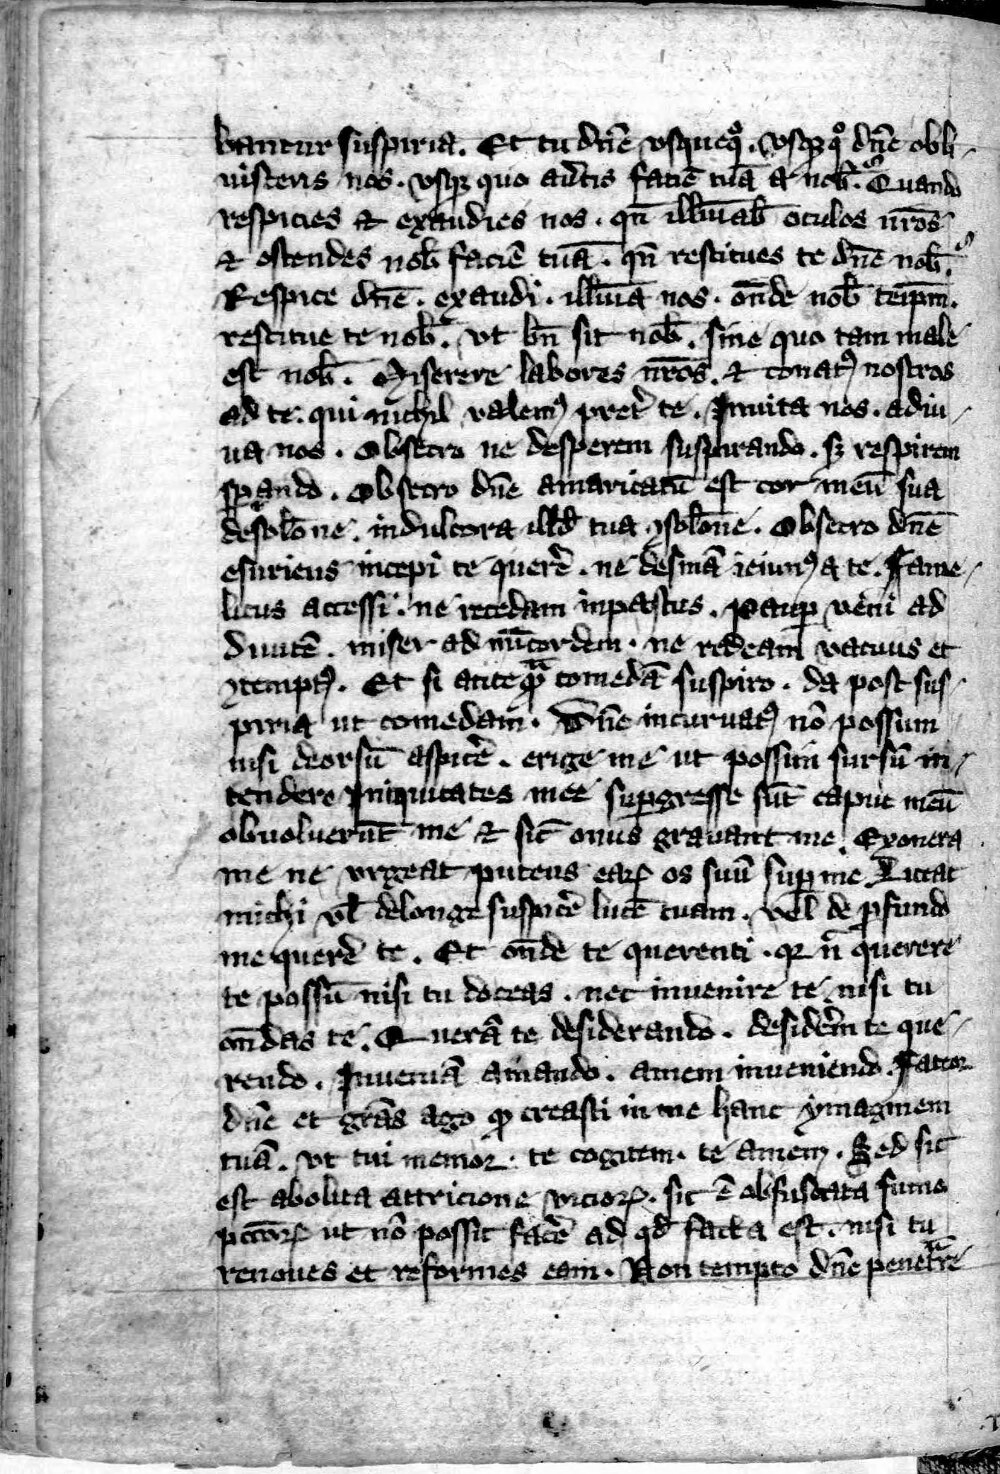 bantur suspiria. Et tu dn̄e vsquequͦ. vsqꝫ qͦ dn̄e obli-
uisceris nos. vsqꝫ quo au̾tis faciē tuā a nob̄. Quando
respicies et exaudies nos. qn̄ illūiab̄ oculos nr̄os
et ostendes nob̄ faciē tuā. qn̄ restitues te dn̄e nob̄.
Respice dn̄e. exaudi. illūia nos. on̄de nob̄ teip̄m.
restitue te nob̄. vt bn̄ sit nob̄. sine quo tam male
est nob̄. Miserere labores nr̄os. et conatꝰ nostros
ad te. qui nichil valemꝰ pret̾ te. Inuita nos. adiu-
ua nos. Obsecro ne desperem suspirando. sꝫ respirem
sꝑando. Obsecro dn̄e amaricatū est cor meū sua
desol̄one. indulcora illd̄ tua ꝯsol̄one. Obsecro dn̄e
esuriens incepi te quer̾e. ne desinā ieiunꝰ a te. Fame-
licus accessi. ne recedam inpastus. Pauꝑ veni ad
diuitē. miser ad mīcordem. ne redeam vacuus et
ꝯtemptꝰ. Et si anteqᷓ comedā suspiro. da post sus-
piria ut comedam. Dn̄e incuruatꝰ nō possum
nisi deorsū aspic̾e. erige me ut possim sursū in-
tendere Iniquitates mee suꝑgresse sūt caput meū
obuoluerūt me et sic̄ onus grauant me. Exonera
me ne vrgeat puteus eaꝝ os suū suꝑ me. Liceat
michi vl̄ delonge suspic̾e lucē tuam. vel de ꝓfundo
me quer̾e te. Et on̄de te querenti. qꝛ n̄ querere
te possū nisi tu doceas. nec inuenire te nisi tu
on̄das te. Querā te desiderando. desider̄m te que-
rendo. Inueniā amando. amem inueniendo. Fateor
dn̄e et grās ago ꝙ creasti in me hanc ymaginem
tuā. vt tui memor. te cogitem. te amem. Sed sic
est abolita attricione vicioꝝ. sic ē obfuscata fumo
pctōꝝ ut nō possit fac̾e ad qd̄ facta est. nisi tu
renoues et reformes eam. Non tempto dn̄e penetᷓre